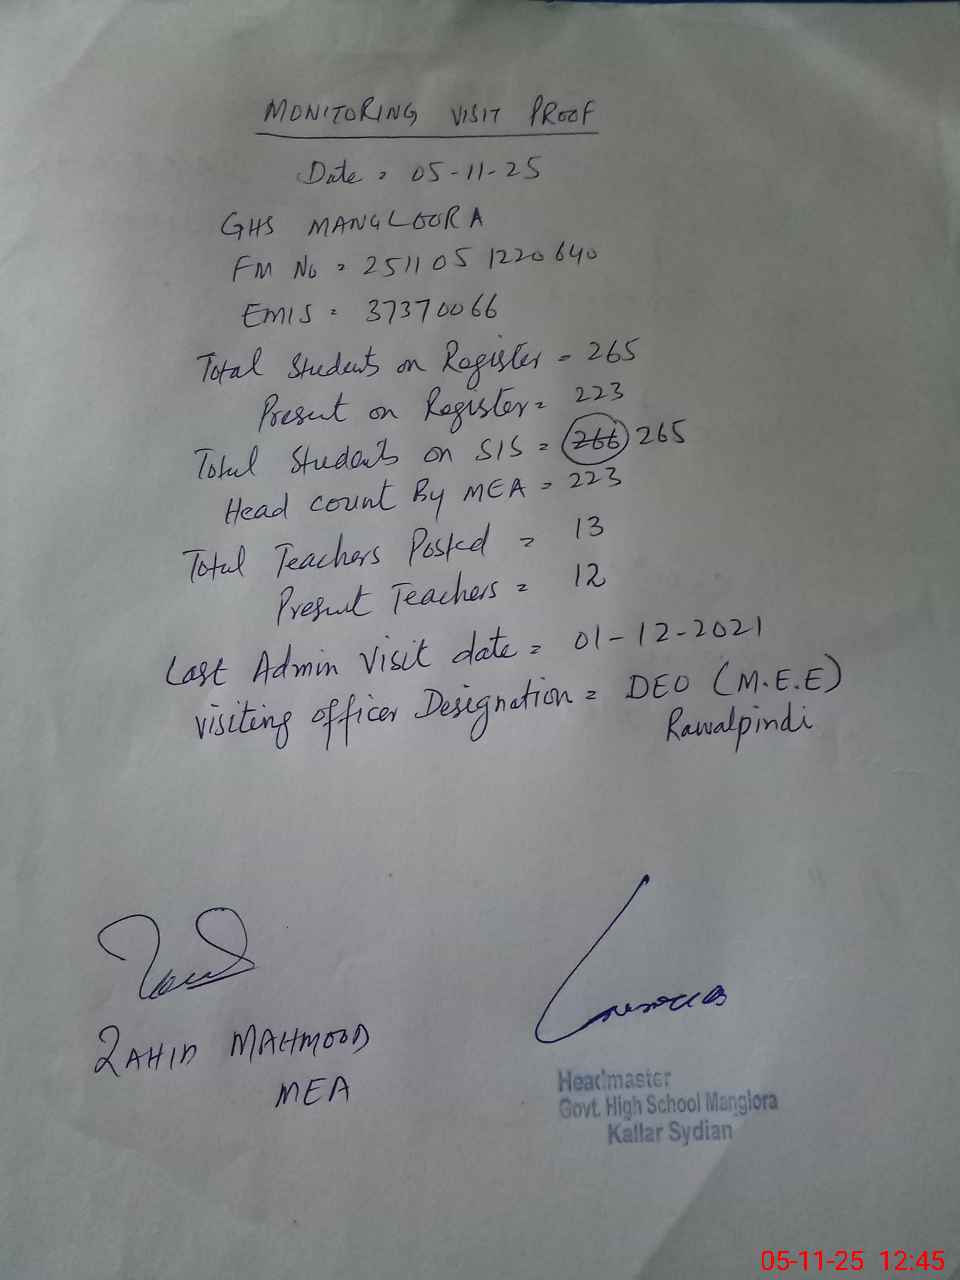 MONITORING VISIT PROOF
Date = 05-11-25
GHS MANGLOORA
FM No = 251105 1220640
EMIS = 37370066
Total Students on Register = 265
Present on Register = 223
Total Students on SIS = 266 265
Head count By MEA = 223
Total Teachers Posted = 13
Present Teachers = 12
Last Admin Visit date = 01-12-2021
visiting officer Designation = DEO (M.E.E)
Rawalpindi
ZAHID MAHMOOD
MEA
Headmaster
Govt. High School Manglora
Kallar Sydian
05-11-25 12:45